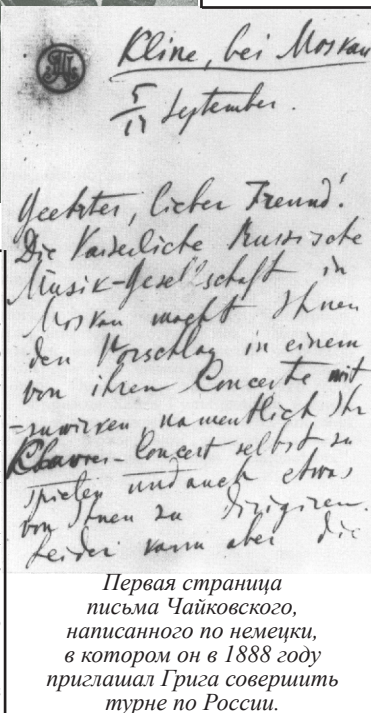 Kline, bei Moskau
5/17 September.
Geehrter, lieber Freund!
Die Kaiserliche Russische
Musik-Gesellschaft in
Moskau macht Ihnen
den Vorschlag in einem
von ihren Concerte mit
=zuwirken, namentlich Ihr
Clavier-Concert selbst zu
spielen und auch etwas
von Ihnen zu dirigiren.
Leider kann aber die
Первая страница
письма Чайковского,
написанного по немецки,
в котором он в 1888 году
приглашал Грига совершить
турне по России.